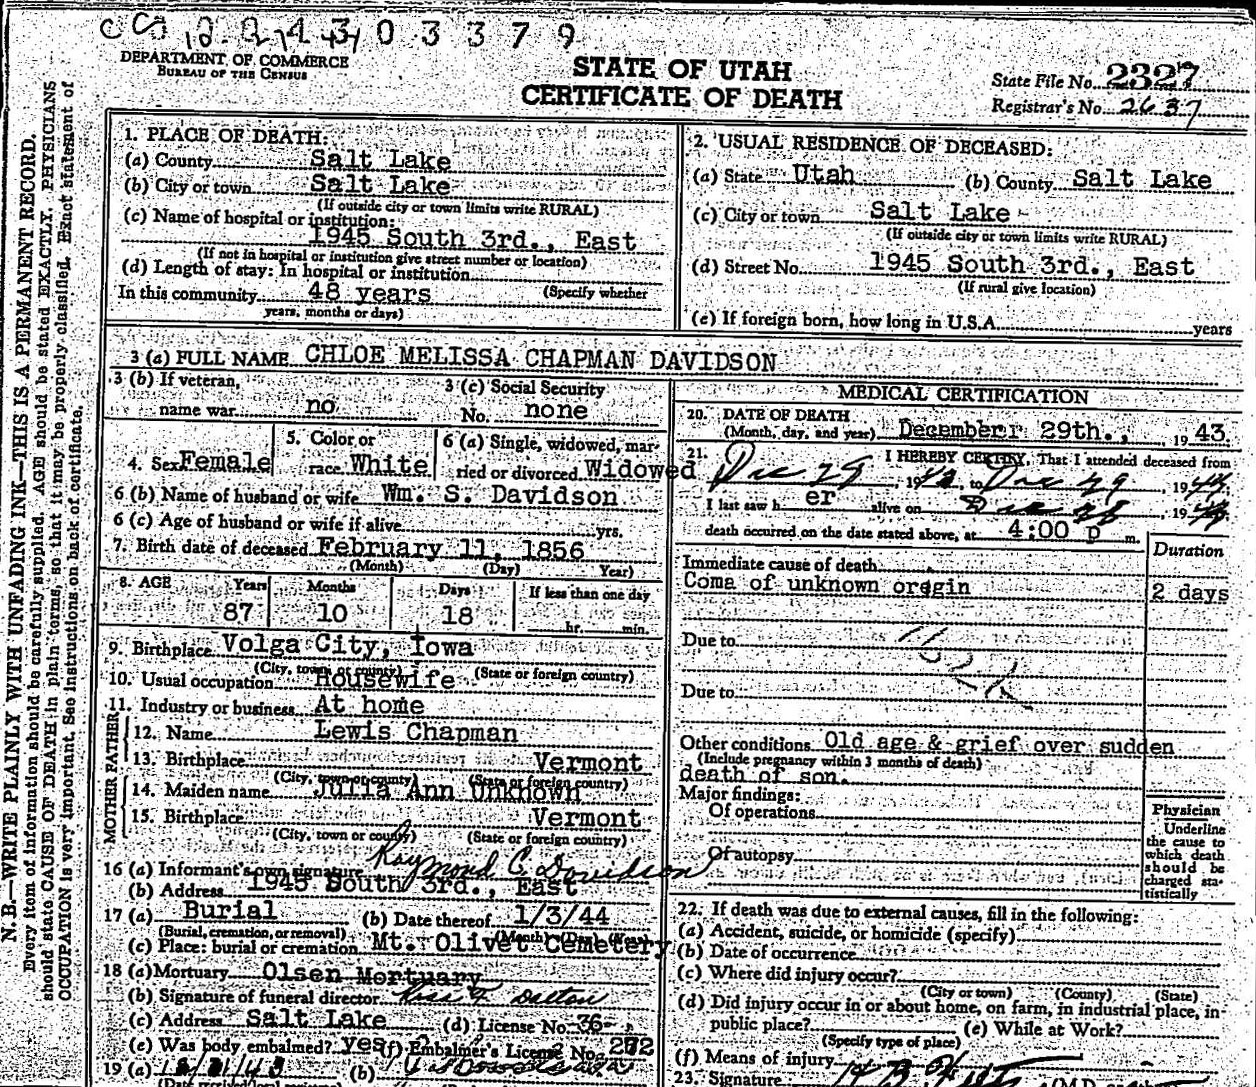 0 3 3 7 9
DEPARTMENT OF COMMERCE
BUREAU OF THE CENSUS
STATE OF UTAH
CERTIFICATE OF DEATH
State File No. 2327
Registrar's No. 2637
N. B.—WRITE PLAINLY WITH UNFADING INK—THIS IS A PERMANENT RECORD.
Every item of information should be carefully supplied. AGE should be stated EXACTLY. PHYSICIANS
should state CAUSE OF DEATH in plain terms, so that it may be properly classified. Exact statement of
OCCUPATION is very important. See instructions on back of certificate.
1. PLACE OF DEATH:
(a) County Salt Lake
(b) City or town Salt Lake
(If outside city or town limits write RURAL)
(c) Name of hospital or institution:
1945 South 3rd., East
(If not in hospital or institution give street number or location)
(d) Length of stay: In hospital or institution
In this community 48 years (Specify whether
years, months or days)
2. USUAL RESIDENCE OF DECEASED:
(a) State Utah (b) County Salt Lake
(c) City or town Salt Lake
(If outside city or town limits write RURAL)
(d) Street No. 1945 South 3rd., East
(If rural give location)
(e) If foreign born, how long in U.S.A. years
3 (a) FULL NAME CHLOE MELISSA CHAPMAN DAVIDSON
3 (b) If veteran,
name war no
3 (c) Social Security
No. none
4. Sex Female
5. Color or
race White
6 (a) Single, widowed, mar-
ried or divorced Widowed
6 (b) Name of husband or wife Wm. S. Davidson
6 (c) Age of husband or wife if alive yrs.
7. Birth date of deceased February 11, 1856
(Month) (Day) Year)
8. AGE Years Months Days If less than one day
87 10 18 hr. min.
9. Birthplace Volga City, Iowa
(City, town or county) (State or foreign country)
10. Usual occupation Housewife
11. Industry or business At home
FATHER
12. Name Lewis Chapman
13. Birthplace Vermont
(City, town or county) (State or foreign country)
MOTHER
14. Maiden name Julia Ann Unknown
15. Birthplace Vermont
(City, town or county) (State or foreign country)
16 (a) Informant's own signature Raymond C. Davidson
(b) Address 1945 South 3rd., East
17 (a) Burial (b) Date thereof 1/3/44
(Burial, cremation, or removal) (Month) (Day) (Year)
(c) Place: burial or cremation Mt. Olivet Cemetery
18 (a) Mortuary Olsen Mortuary
(b) Signature of funeral director Dalton
(c) Address Salt Lake (d) License No. 36
(e) Was body embalmed? yes (f) Embalmer's License No.
19 (a) 12/31/43 (b)
(Date received local registrar)
MEDICAL CERTIFICATION
20. DATE OF DEATH
(Month, day, and year) December 29th., 1943.
21. I HEREBY CERTIFY, That I attended deceased from
Dec 29, 19 to Dec 29, 19
I last saw her alive on Dec 28, 19
death occurred on the date stated above, at 4:00 p m.
Duration
Immediate cause of death
Coma of unknown oregin 2 days
Due to
Due to
Other conditions Old age & grief over sudden
(Include pregnancy within 3 months of death)
death of son.
Major findings:
Of operations
Of autopsy
Physician
Underline
the cause to
which death
should be
charged sta-
tistically
22. If death was due to external causes, fill in the following:
(a) Accident, suicide, or homicide (specify)
(b) Date of occurrence
(c) Where did injury occur?
(City or town) (County) (State)
(d) Did injury occur in or about home, on farm, in industrial place, in
public place? (e) While at Work?
(Specify type of place)
(f) Means of injury
23. Signature (M.D.